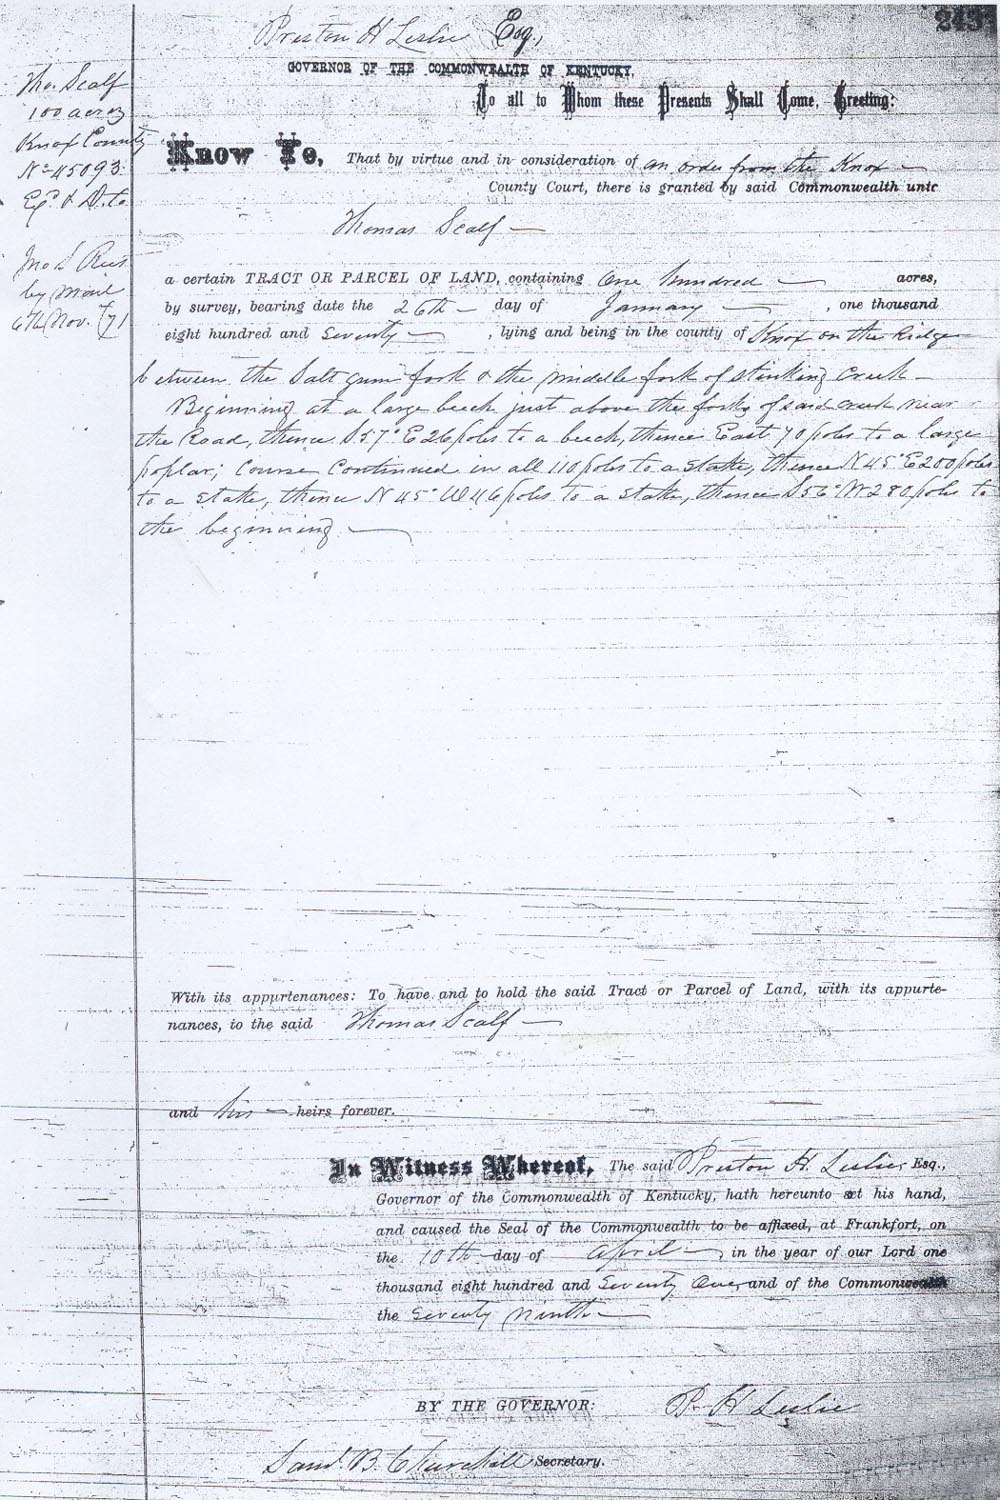 243
Preston H Leslie Esq.,
GOVERNOR OF THE COMMONWEALTH OF KENTUCKY,
To all to Whom these Presents Shall Come, Greeting:
Tho. Scalf
100 acres
Knox County
No 45093
Exd & D. to
by mail
6th Nov. /71
Know Ye, That by virtue and in consideration of an order from the Knox
County Court, there is granted by said Commonwealth unto
Thomas Scalf
a certain TRACT OR PARCEL OF LAND, containing One hundred acres,
by survey, bearing date the 26th day of January , one thousand
eight hundred and Seventy , lying and being in the county of Knox on the Ridge
between the Salt gum fork & the middle fork of Stinking Creek
Beginning at a large beech just above the forks of said creek near
the Road, thence S 57° E 26 poles to a beech, thence East 70 poles to a large
poplar; course continued in all 110 poles to a stake, thence N 45° E 200 poles
to a stake, thence N 45° W 46 poles to a stake, thence S 56° W 280 poles to
the beginning
With its appurtenances: To have and to hold the said Tract or Parcel of Land, with its appurte-
nances, to the said Thomas Scalf
and his heirs forever.
In Witness Whereof, The said Preston H. Leslie, Esq.,
Governor of the Commonwealth of Kentucky, hath hereunto set his hand,
and caused the Seal of the Commonwealth to be affixed, at Frankfort, on
the 10th day of April , in the year of our Lord one
thousand eight hundred and Seventy One, and of the Commonwealth
the Seventy Ninth
BY THE GOVERNOR: P. H. Leslie
Saml. B. Churchill Secretary.